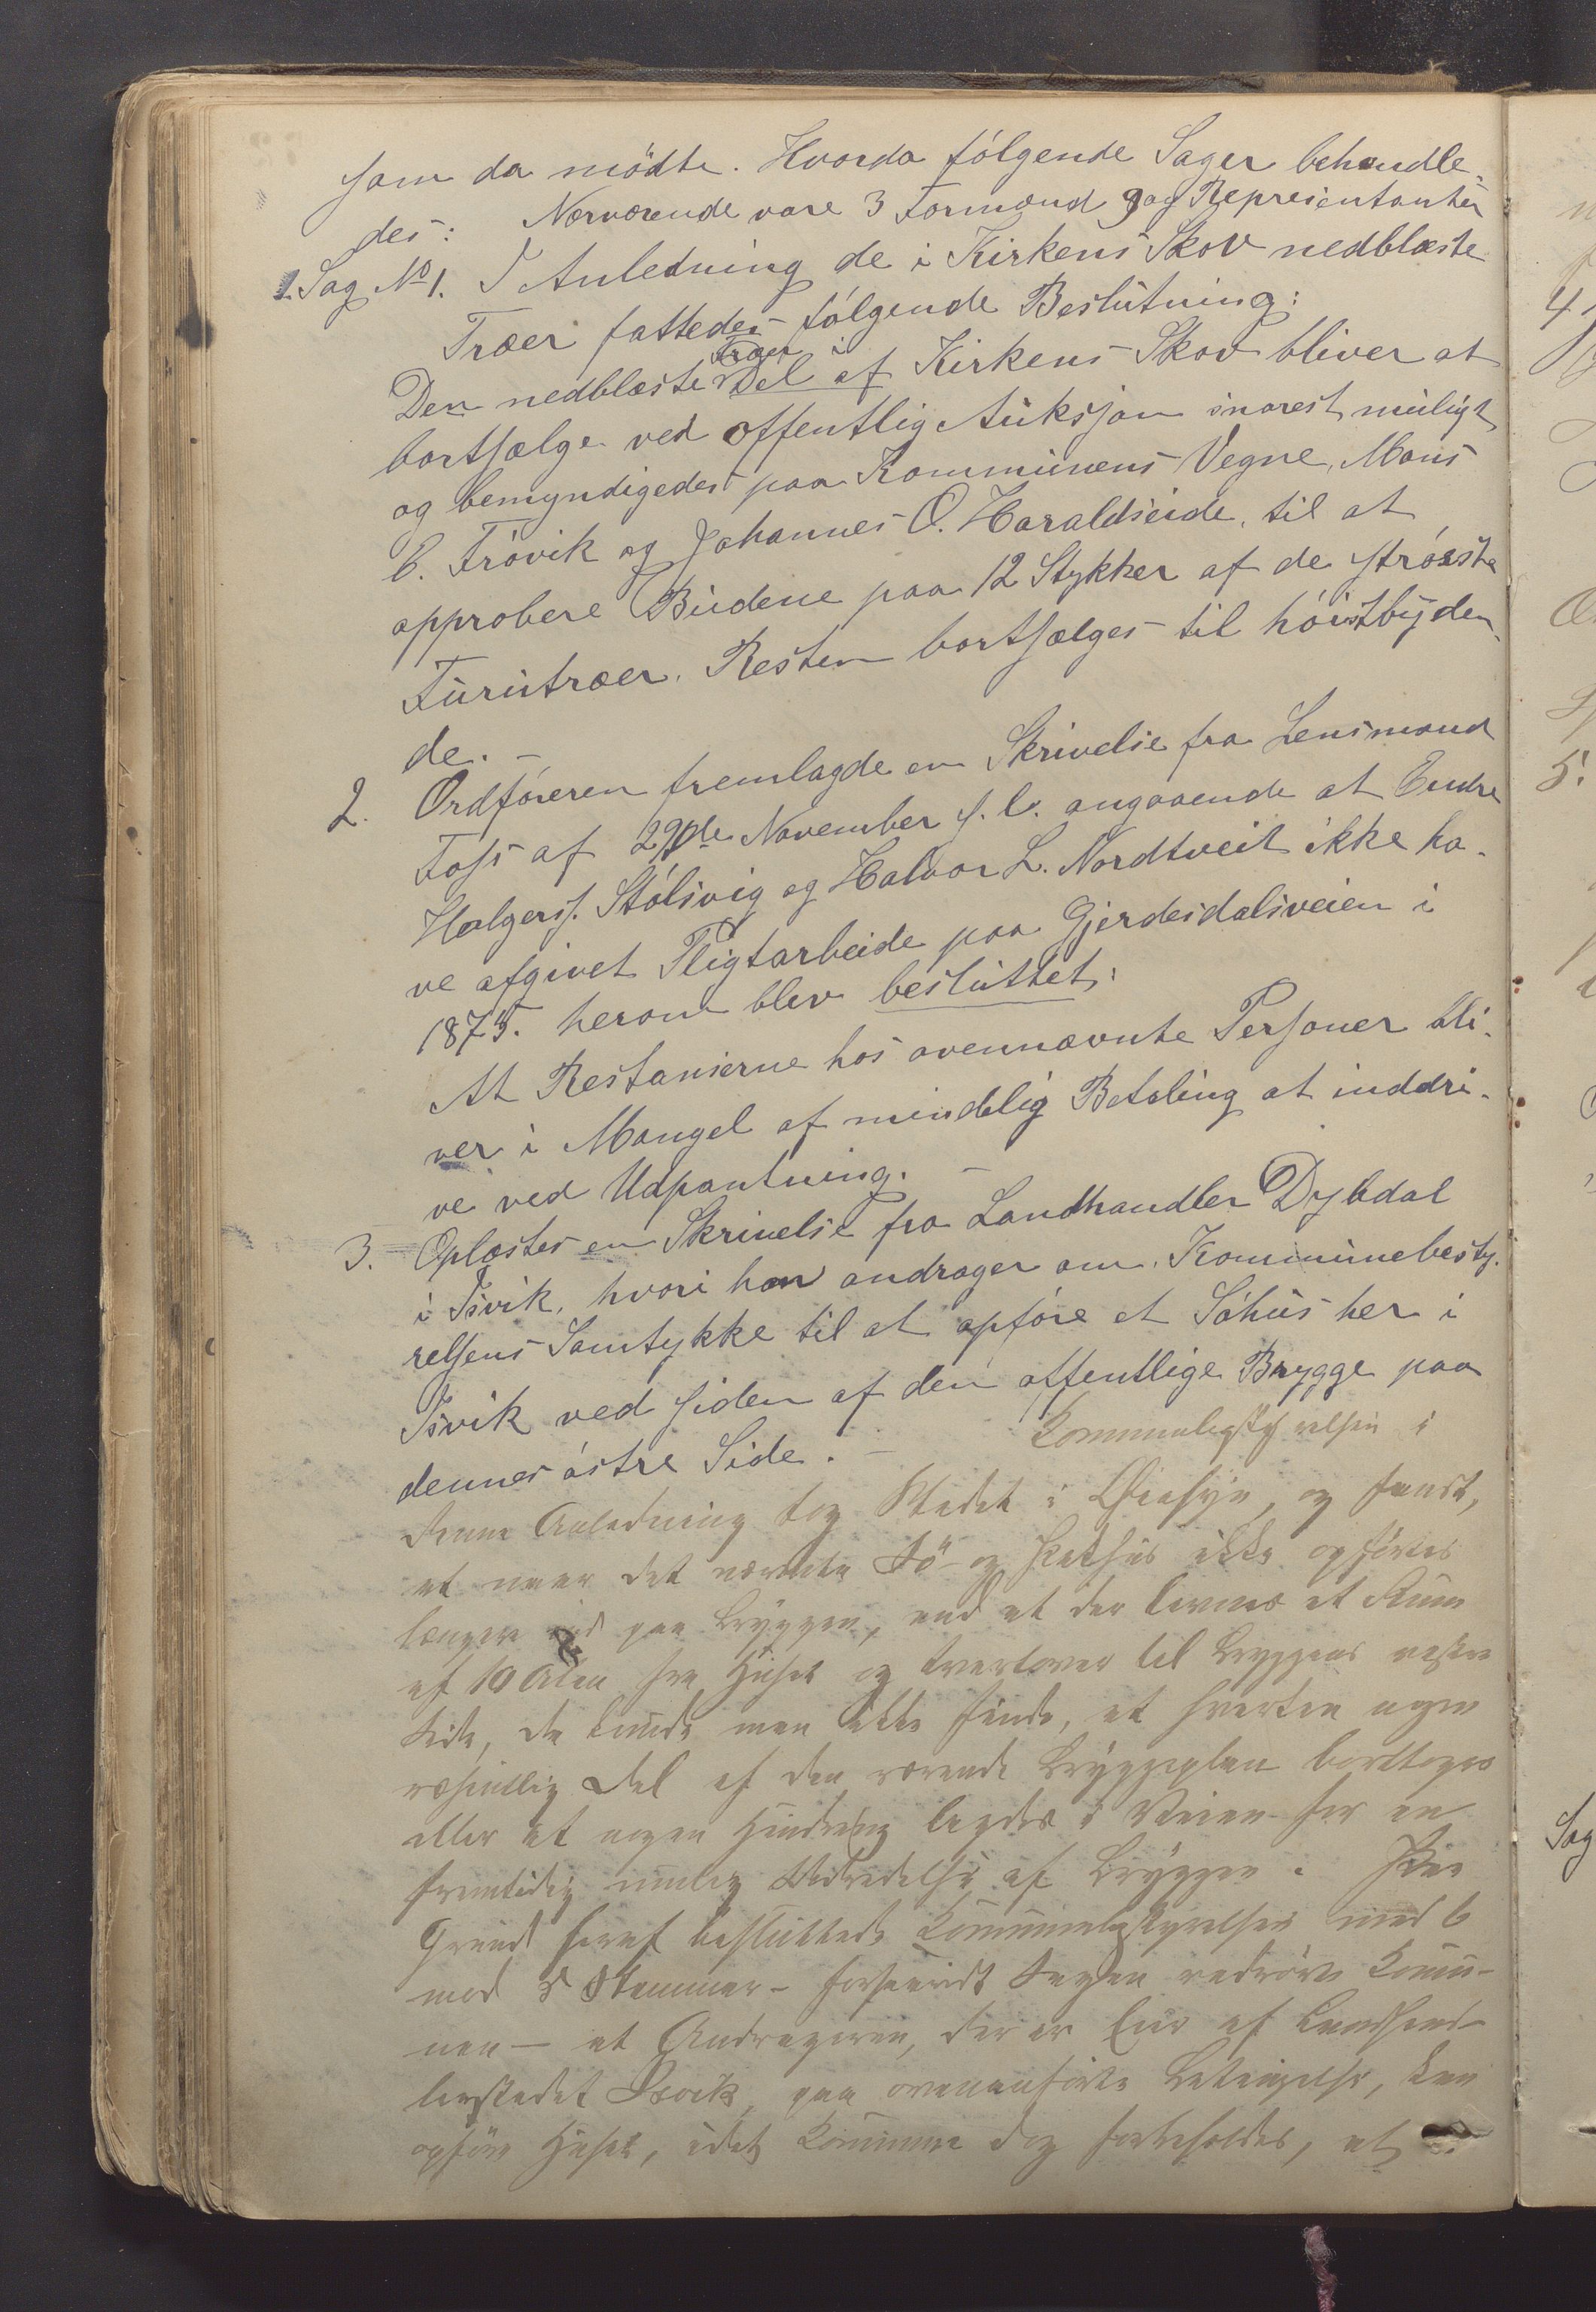 som da mödte. Hvorda følgende Sager behandle-
des: Nærværende vare 3 Formænd 9 af Representanter
1. Sag No 1. I Anledning de i Kirkens Skov nedblæste
Træer fattedes følgende Beslutning:
Træer i
Den nedblæste Del af Kirkens Skov bliver at
bortsælge ved offentlig Auksjon snarest muligt
og bemyndigedes paa Kommunens Vegne, Mons
E. Frövik og Johannes O. Haraldseide, til at
approbere Budene paa 12 Stykker af de største
Furutræer. Resten bortsælges til høistbyden-
de. –
2. Ordføreren fremlagde en Skrivelse fra Lensmand
Foss af 29de November f. A. angaaende at Endre
Holgers. Stølsvig og Halvor L. Nordtveit ikke ha-
ve afgivet Pligtarbeide paa Gjerdesdalsveien i
1875. herom blev besluttet:
At Restanserne hos ovennævnte Personer bli-
ver i Mangel af mindelig Betaling at inddri-
ve ved Udpantning. –
3. Oplæstes en Skrivelse fra Landhandler Dybdal
i Isvik, hvori han andrager om Kommunebesty-
relsens Samtykke til at opføre et Søhus her i
Isvik ved siden af den offentlige Brygge paa
dennes østre Side. – Kommunebestyrelsen i
denne Anledning tog Stedet i Øiesyn, og fandt,
at naar det nævnte Sö- og Pakhus ikke opførtes
længere ud paa Bryggen, end at der levnes et Rum
af 10 Alen fra Huset og tvertover til Bryggens vestre
Side, da kunde man ikke finde, at hverken nogen
væsentlig Del af den værende Bryggeplan borttoges
eller at nogen Hindring lagdes i Veien for en
fremtidig mulig Udvidelse af Bryggen. Paa
Grund heraf besluttede Kommunebestyrelsen med 6
mod 5 Stemmer – forsaavidt Sagen vedrører Kommu-
nen – at Andrageren, der er Eier af Landhand-
lerstedet Isvik, paa ovenanførte Betingelse, kan
opføre Huset, idet Kommunen dog forbeholdes, at
4.
5.
Sag